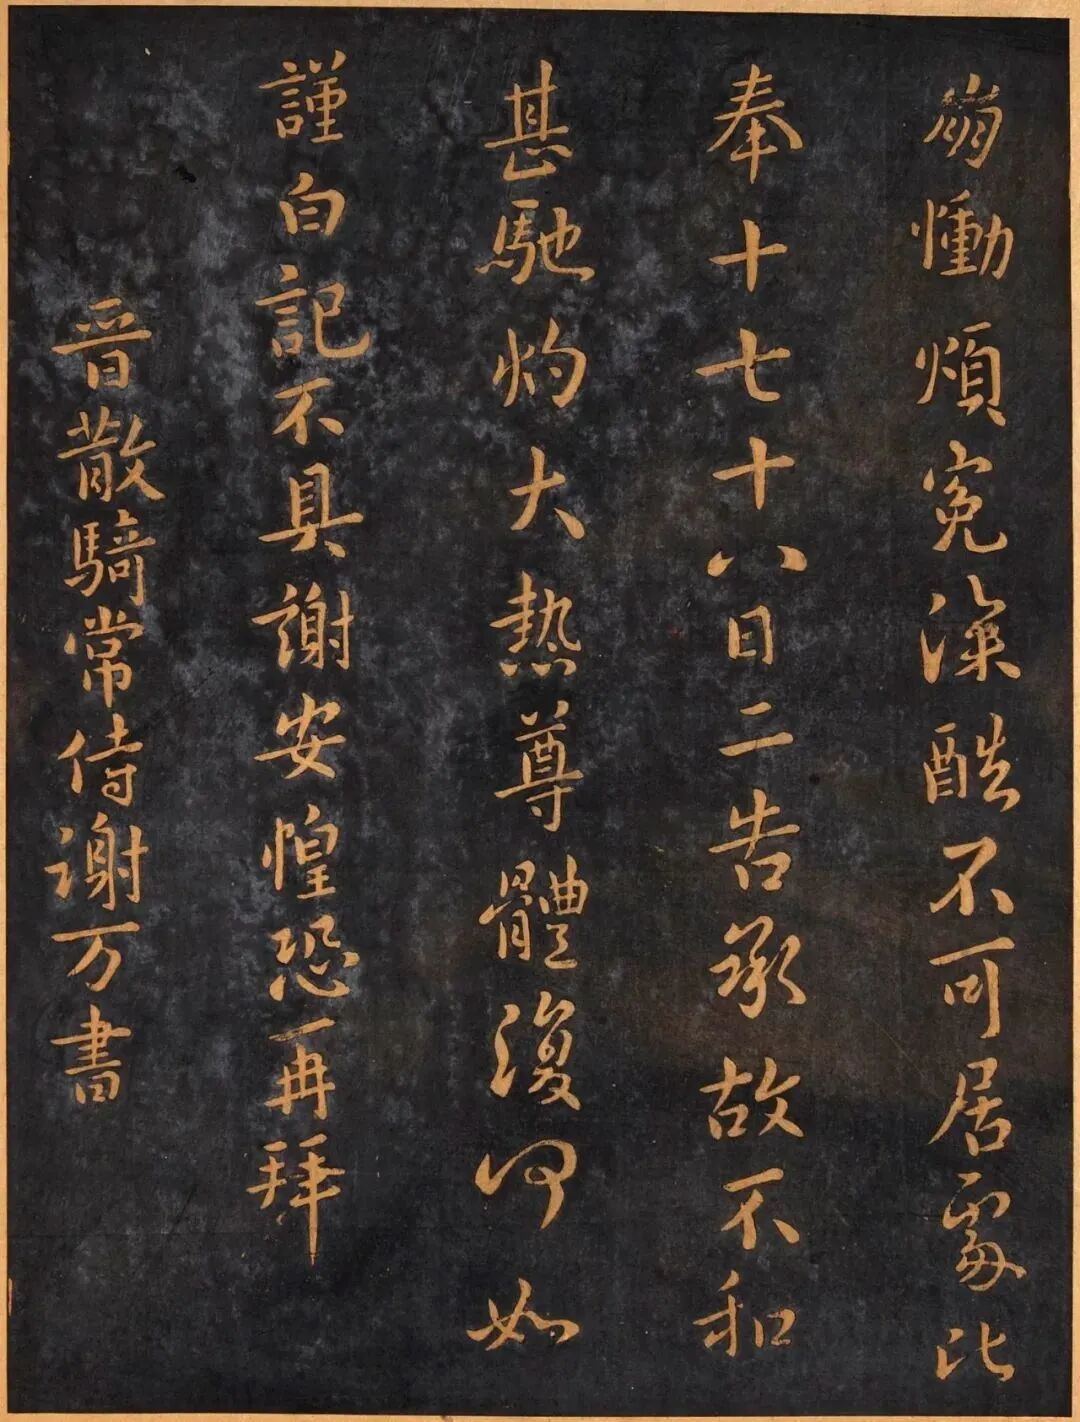 崩慟煩冤深酷不可居處比
奉十七十八日二告承故不和
甚馳灼大熱尊體復何如
謹白記不具謝安惶恐再拜
晋散騎常侍謝万書